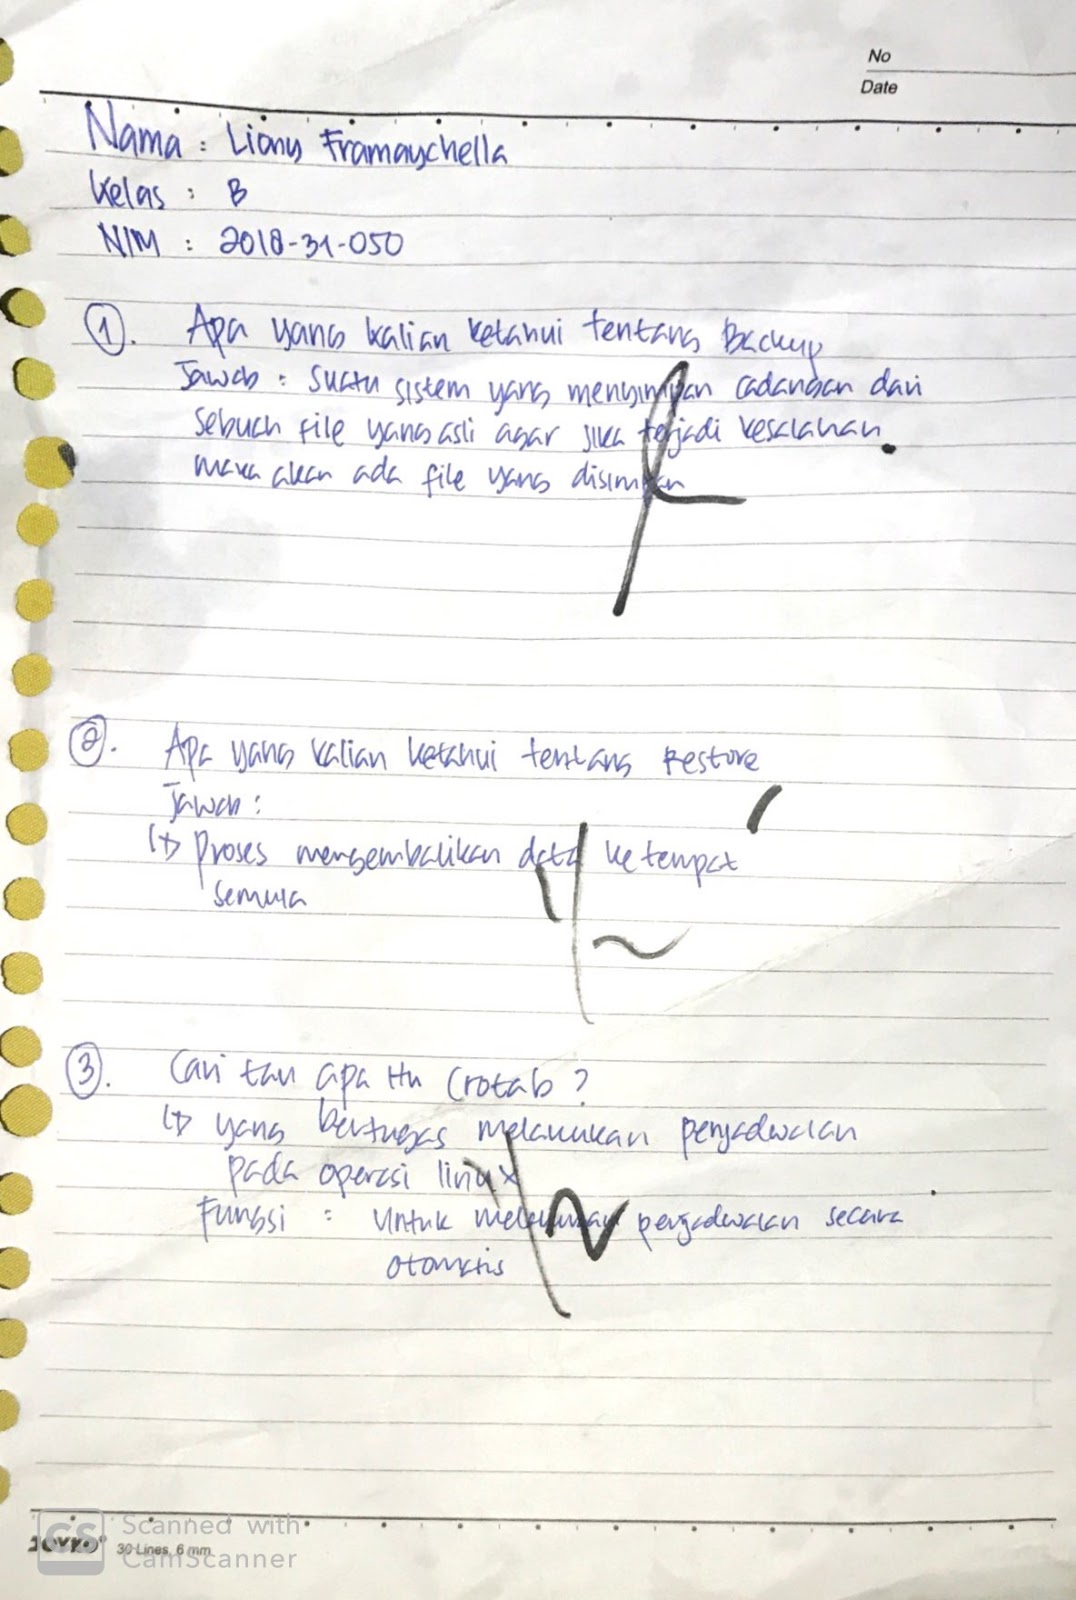 No
Date
Nama : Liony Framaychella
Kelas : B
NIM : 2018-31-050
1. Apa yang kalian ketahui tentang Backup
Jawab : Suatu sistem yang menyimpan cadangan dari
sebuah file yang asli agar jika terjadi kesalahan
maka akan ada file yang disimpan
2. Apa yang kalian ketahui tentang Restore
Jawab :
↳ Proses mengembalikan data ke tempat
semula
3. Cari tau apa itu Crotab ?
↳ yang bertugas melakukan penjadwalan
pada operasi linux
Fungsi : Untuk melakukan penjadwalan secara
otomatis
JOYKO 30 Lines, 6 mm
CS Scanned with
CamScanner